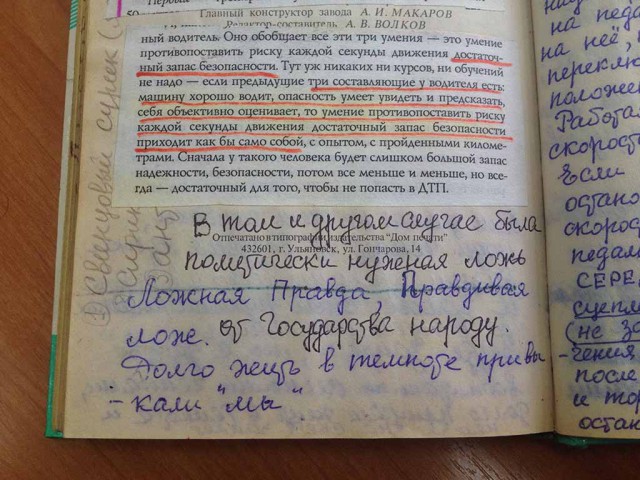 Главный конструктор завода А. И. МАКАРОВ
Редактор-составитель А. В. ВОЛКОВ
ный водитель. Оно обобщает все эти три умения — это умение
противопоставить риску каждой секунды движения достаточ-
ный запас безопасности. Тут уж никаких ни курсов, ни обучений
не надо — если предыдущие три составляющие у водителя есть:
машину хорошо водит, опасность умеет увидеть и предсказать,
себя объективно оценивает, то умение противопоставить риску
каждой секунды движения достаточный запас безопасности
приходит как бы само собой, с опытом, с пройденными киломе-
трами. Сначала у такого человека будет слишком большой запас
надежности, безопасности, потом все меньше и меньше, но все-
гда — достаточный для того, чтобы не попасть в ДТП.
В том и другом случае была
Отпечатано в типографии издательства "Дом печати"
432601, г. Ульяновск, ул. Гончарова, 14
политически нуженая ложь
Ложная Правда, Правдивая
ложе. от Государства народу.
Долго жещь в темноте привы
- кали "мы"
1) Свинцовый сурик (
на педа
на неё,
переклю
положен
Работа
скорост
Если
остано
скорос
педал
СЕРЕ
сцепл
(не за
-чения
после
и тор
остан